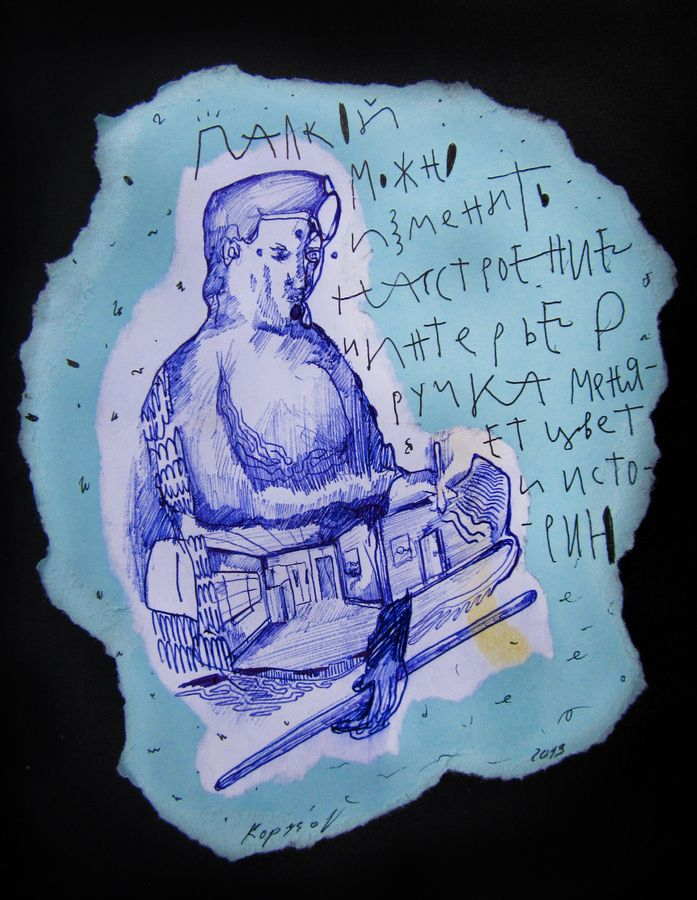 ПАЛКОЙ
МОЖНО
ИЗМЕНИТЬ
НАСТРОЕНИЕ
И ИНТЕРЬЕР
РУЧКА МЕНЯ-
ЕТ ЦВЕТ
И ИСТО-
-РИИ
2013